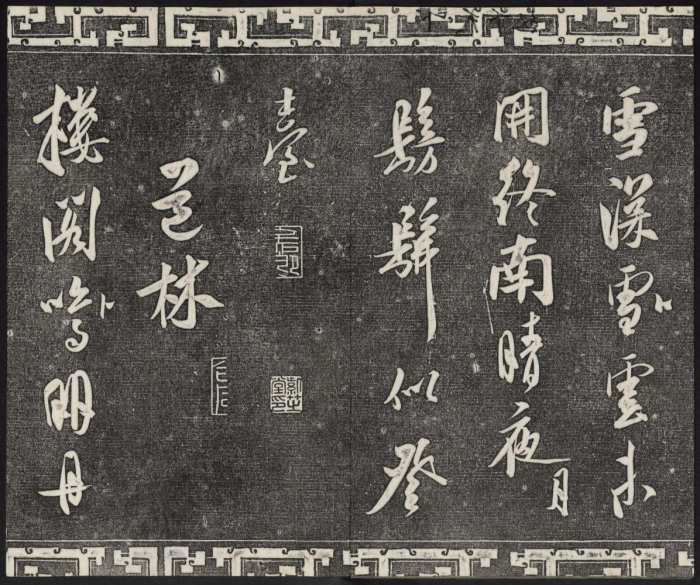 雪深雪雲未
開終南晴夜月
髣髴似登
臺
道林
樓閣鳴明丹